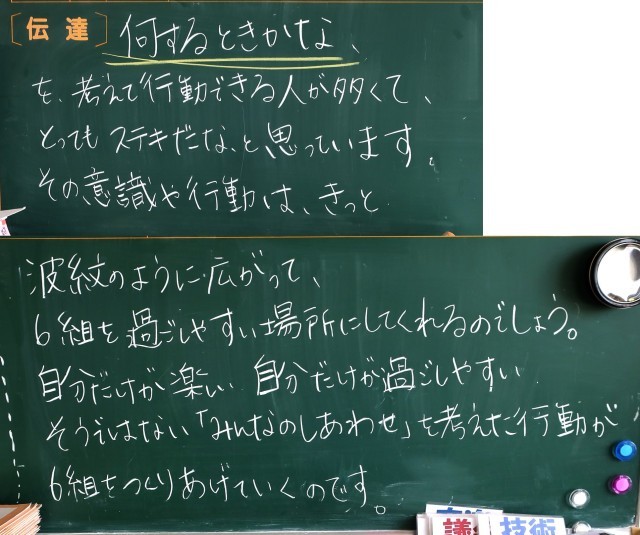 伝達
何するときかな、
を、考えて行動できる人が多くて、
とってもステキだな、と思っています。
その意識や行動は、きっと
波紋のように広がって、
6組を過ごしやすい場所にしてくれるのでしょう。
自分だけが楽しい 自分だけが過ごしやすい
そうではない「みんなのしあわせ」を考えた行動が
6組をつくりあげていくのです。
技術